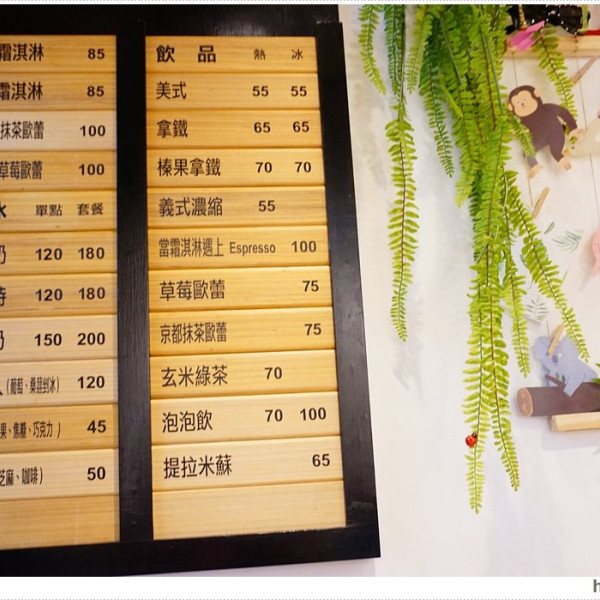 霜淇淋 85
霜淇淋 85
抹茶歐蕾 100
草莓歐蕾 100
單點 套餐
奶 120 180
120 180
奶 150 200
(葡萄、桑葚剉冰) 120
果、焦糖、巧克力) 45
芝麻、咖啡) 50
飲品 熱 冰
美式 55 55
拿鐵 65 65
榛果拿鐵 70 70
義式濃縮 55
當霜淇淋遇上 Espresso 100
草莓歐蕾 75
京都抹茶歐蕾 75
玄米綠茶 70
泡泡飲 70 100
提拉米蘇 65
h